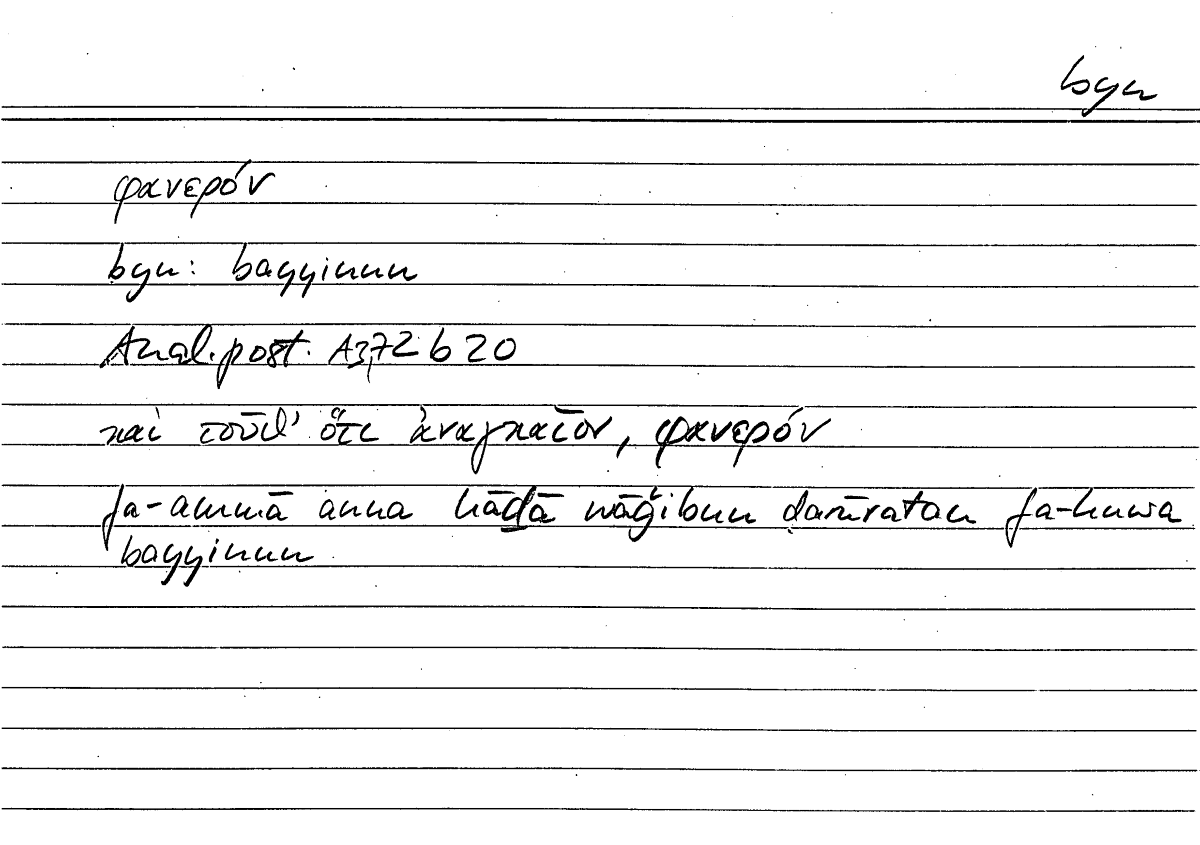 byn
φανερόν
byn: bayyinun
Anal.post. A3,72 b 20
καὶ τοῦθ' ὅτι ἀναγκαῖον, φανερόν
fa-ammā anna hāḏā wāǧibun ḍarūratan fa-huwa
bayyinun